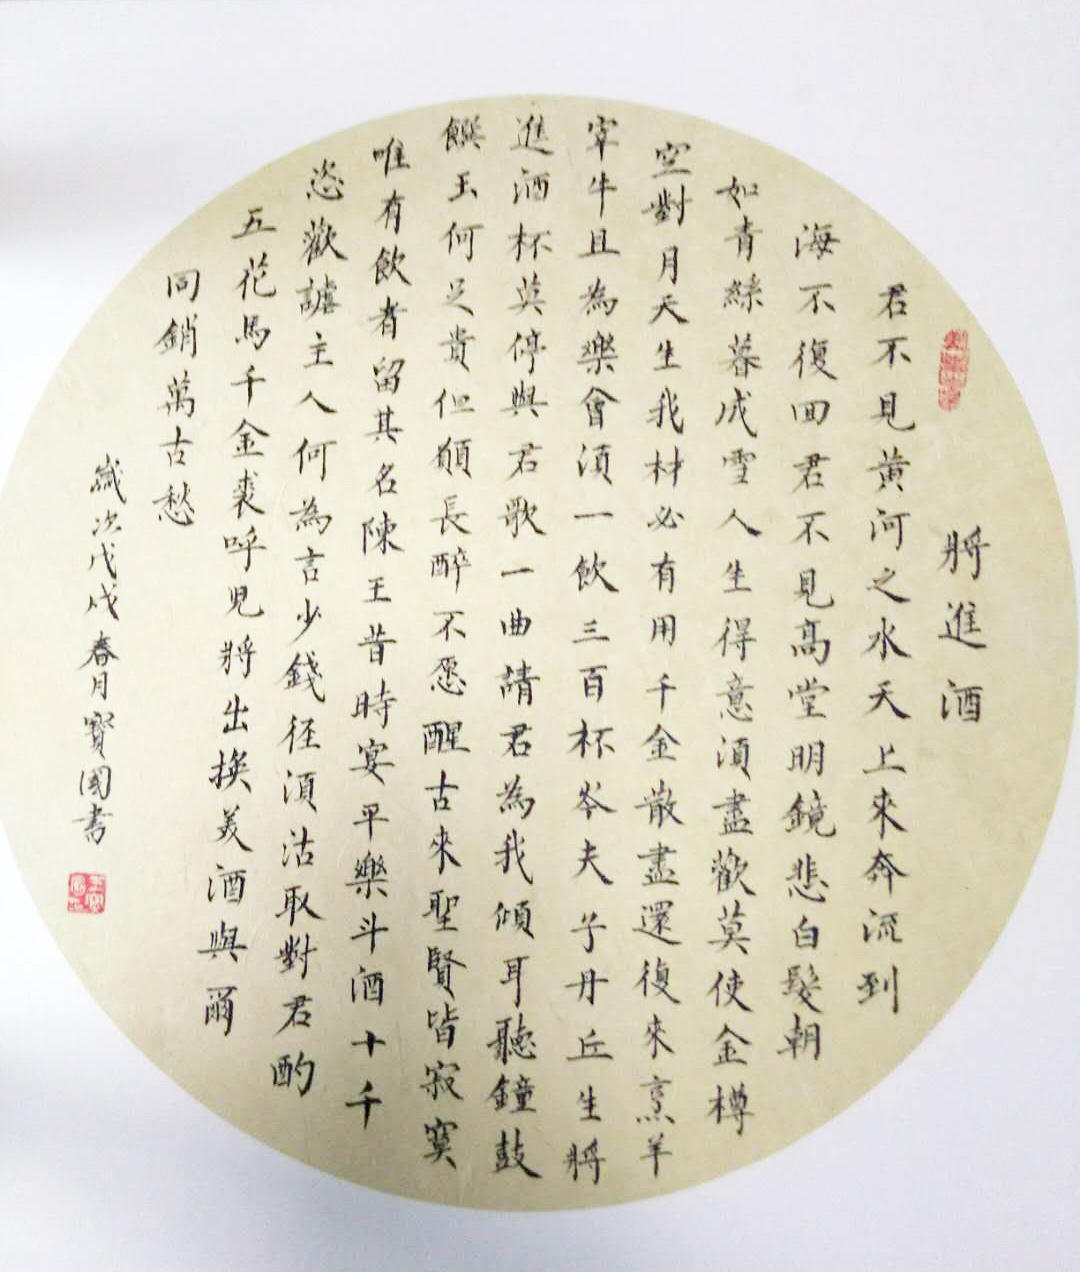 將進酒
君不見黃河之水天上來奔流到
海不復回君不見高堂明鏡悲白髮朝
如青絲暮成雪人生得意須盡歡莫使金樽
空對月天生我材必有用千金散盡還復來烹羊
宰牛且為樂會須一飲三百杯岑夫子丹丘生將
進酒杯莫停與君歌一曲請君為我傾耳聽鐘鼓
饌玉何足貴但願長醉不愿醒古來聖賢皆寂寞
唯有飲者留其名陳王昔時宴平樂斗酒十千
恣歡謔主人何為言少錢徑須沽取對君酌
五花馬千金裘呼兒將出換美酒與爾
同銷萬古愁
歲次戊戌春月寶國書